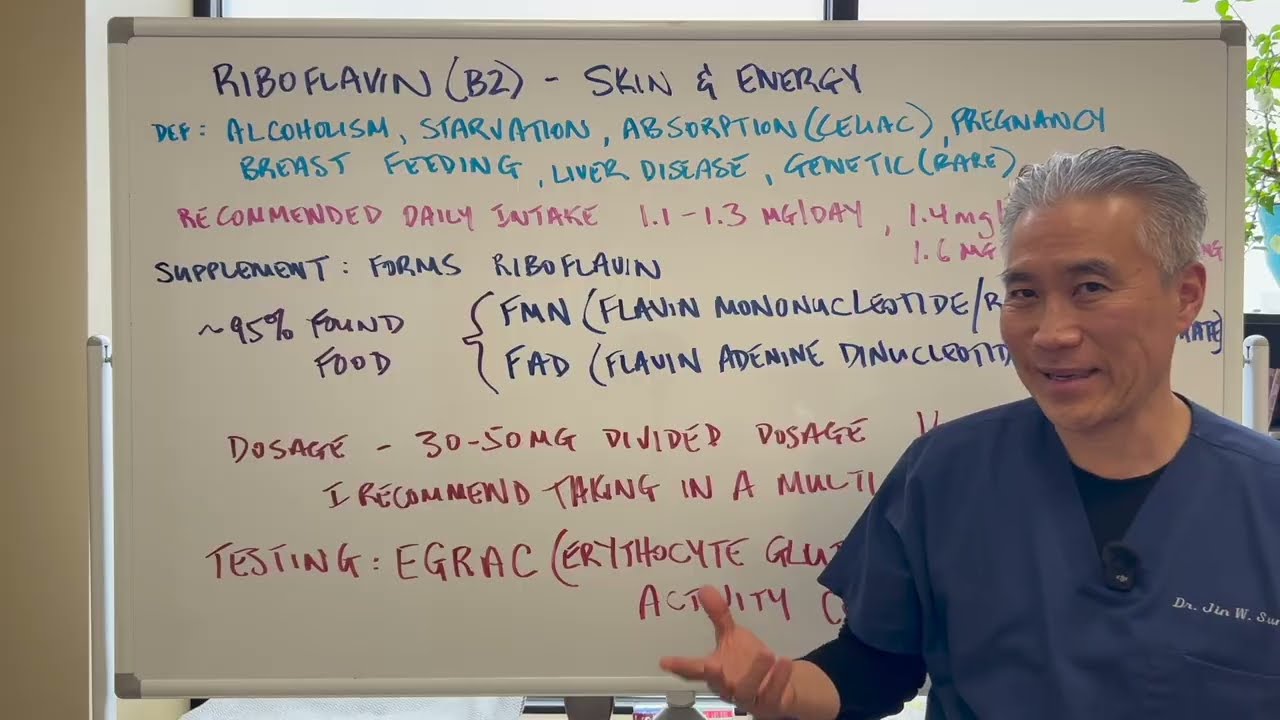 RIBOFLAVIN (B2) - SKIN & ENERGY
DEF: ALCOHOLISM, STARVATION, ABSORPTION (CELIAC), PREGNANCY
BREAST FEEDING, LIVER DISEASE, GENETIC (RARE)
RECOMMENDED DAILY INTAKE 1.1-1.3 MG/DAY, 1.4mg
1.6 MG
SUPPLEMENT: FORMS RIBOFLAVIN
~95% FOUND
FOOD
FMN (FLAVIN MONONUCLEOTIDE/
FAD (FLAVIN ADENINE
DOSAGE - 30-50MG DIVIDED DOSAGE
I RECOMMEND TAKING IN A MULTI
TESTING: EGRAC (ERYTHOCYTE
ACTIVITY
Dr. Jin W.